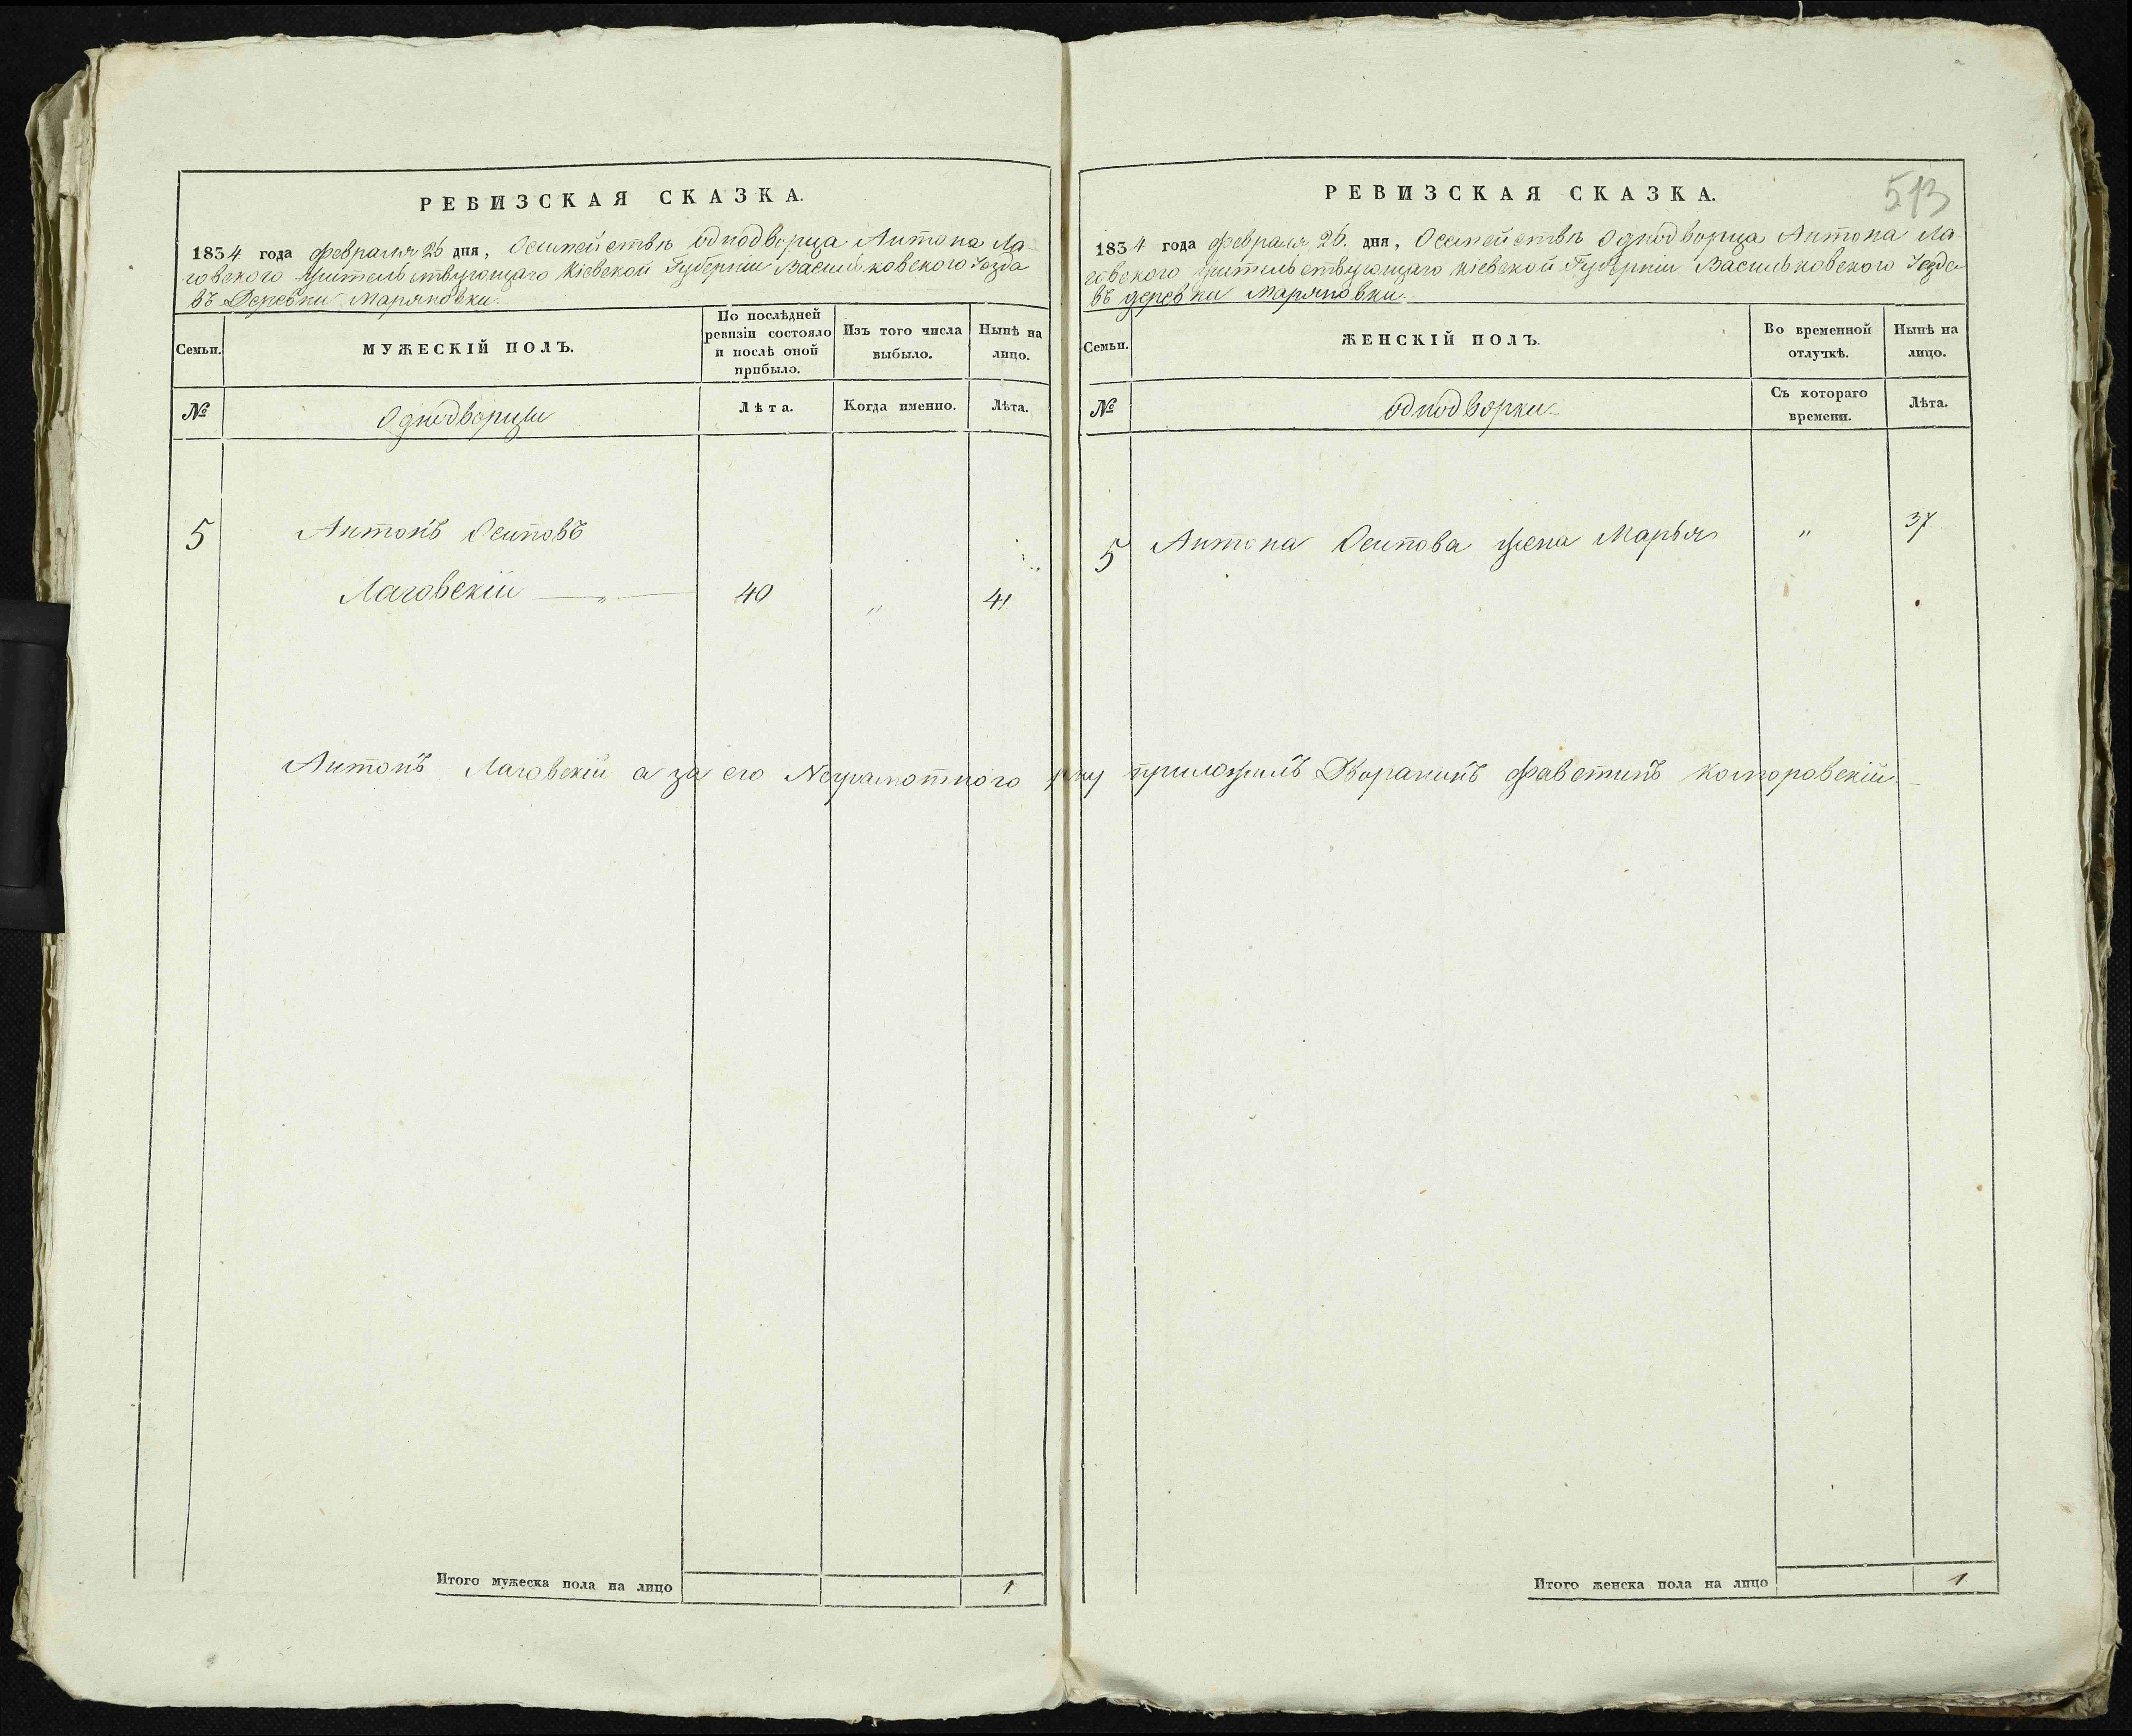 РЕВИЗСКАЯ СКАЗКА.
1834 года февраля 26 дня, Осемействѣ однодворца Антона Ла
говского жительствующаго Кіевской Губерніи Васильковского Уезда
въ Деревни Маряновки.
Семьи.
МУЖЕСКІЙ ПОЛЪ.
По послѣдней
ревизіи состояло
и послѣ оной
прибыло.
Изъ того числа
выбыло.
Нынѣ на
лицо.
№
Однодворцы
Лѣта.
Когда именно.
Лѣта.
5 Антонъ Осиповъ
Лаговскій — „ — 40 „ 41
Итого мужеска пола на лицо 1
513
РЕВИЗСКАЯ СКАЗКА.
1834 года февраля 26. дня, Осемействѣ Однодворца Антона Ла
говского жительствующаго Кіевской Губерніи Васильковского Уезда
въ деревни Маряновки.
Семьи.
ЖЕНСКІЙ ПОЛЪ.
Во временной
отлучкѣ.
Нынѣ на
лицо.
№
однодворки
Съ котораго
времени.
Лѣта.
5 Антона Осипова жена Марья „ 37
Антонъ Лаговскій а за его Неграмотного руку приложилъ Фаветинъ Коморовскій
Итого женска пола на лицо 1